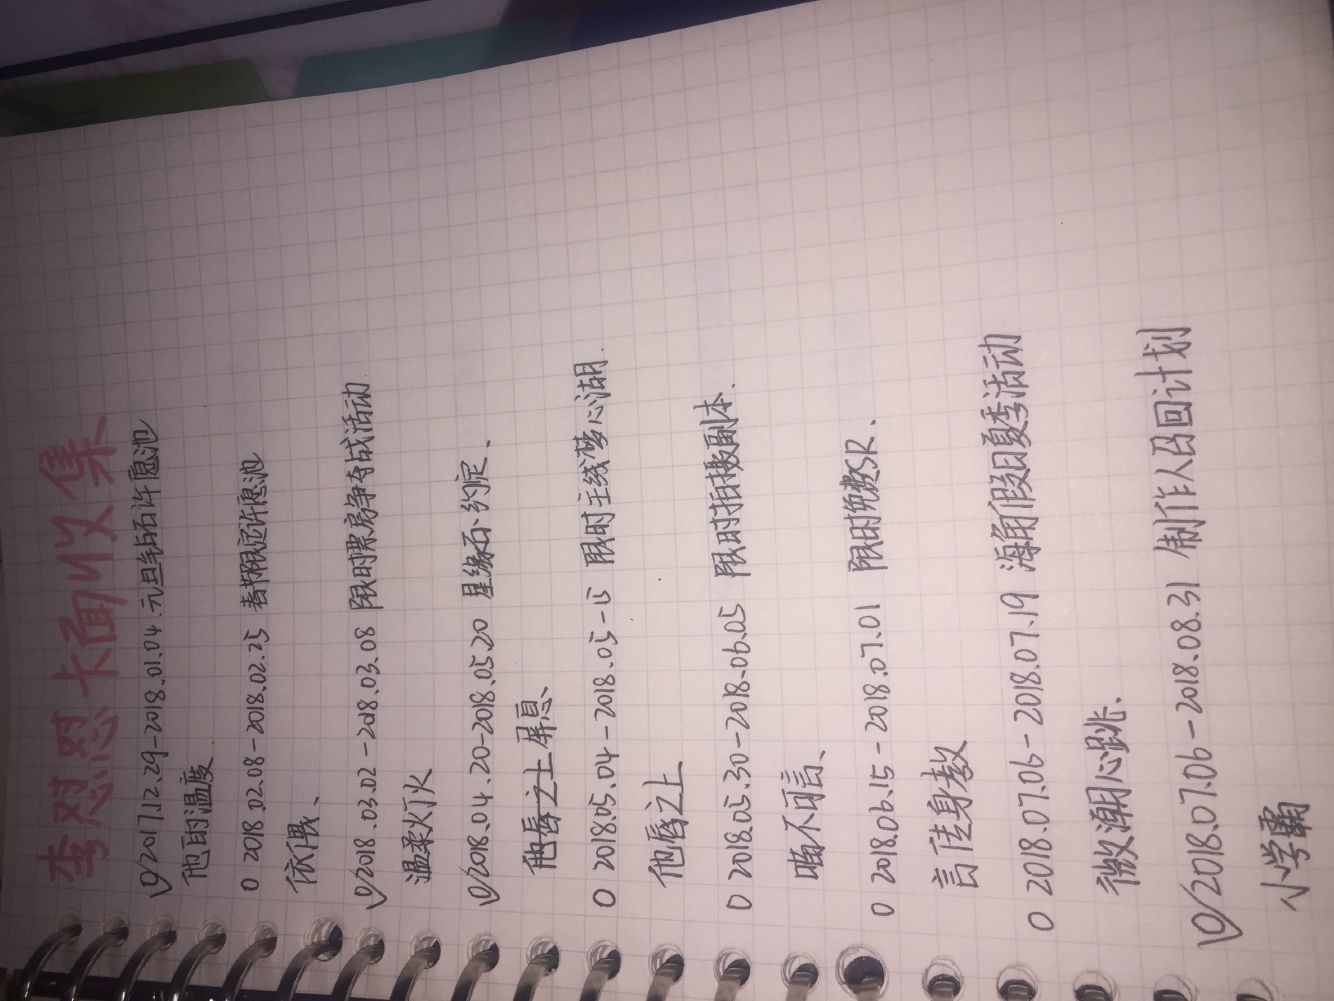 李怼怼卡面收集
2017.12.29-2018.01.04.元旦钻石许愿池
他的温度.
O 2018.02.08-2018.02.25 春节限定许愿池
依偎、
2018.03.02-2018.03.08 限时票房争夺战活动
温柔灯火
2018.04.20-2018.05.20 星缘石·约定.
他唇之上 屏息、
O 2018.05.04-2018.05-15 限时主线梦心湖.
他唇之上
O 2018.05.30-2018.06.05 限时拍摄副本.
不可言、
O 2018.06.15-2018.07.01 限时免费SR.
言传身教
O 2018.07.06-2018.07.19 海角假日夏季活动
微澜心跳.
2018.07.06-2018.08.31 制作人召回计划
小学霸